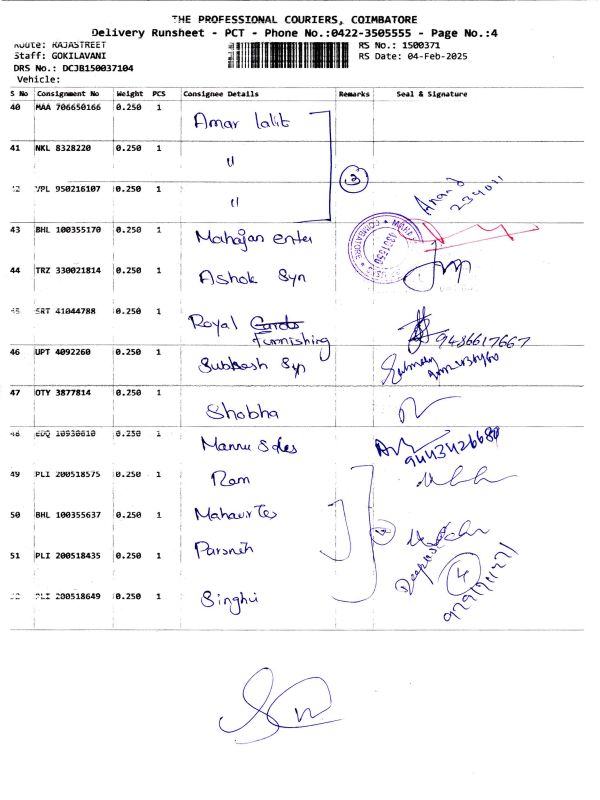 THE PROFESSIONAL COURIERS, COIMBATORE
Delivery Runsheet - PCT - Phone No.:0422-3505555 - Page No.:4
Route: RAJASTREET RS No.: 1500371
Staff: GOKILAVANI RS Date: 04-Feb-2025
DRS No.: DCJB150037104
Vehicle:
S No Consignment No Weight PCS Consignee Details Remarks Seal & Signature
40 MAA 706650166 0.250 1 Amar lalit
41 NKL 8328220 0.250 1 "
42 VPL 950216107 0.250 1 " 3 Anand
43 BHL 100355170 0.250 1 Mahajan enter
44 TRZ 330021814 0.250 1 Ashok Syn
45 SRT 41044788 0.250 1 Royal Furnishing 9486617667
46 UPT 4092260 0.250 1 Subhash Syn
47 OTY 3877814 0.250 1 Shobha
48 EDQ 10930610 0.250 1 Mannu Sales 9443426680
49 PLI 200518575 0.250 1 Ram
50 BHL 100355637 0.250 1 Mahavir Tex
51 PLI 200518435 0.250 1 Parsneh 4
52 PLI 200518649 0.250 1 Singhvi